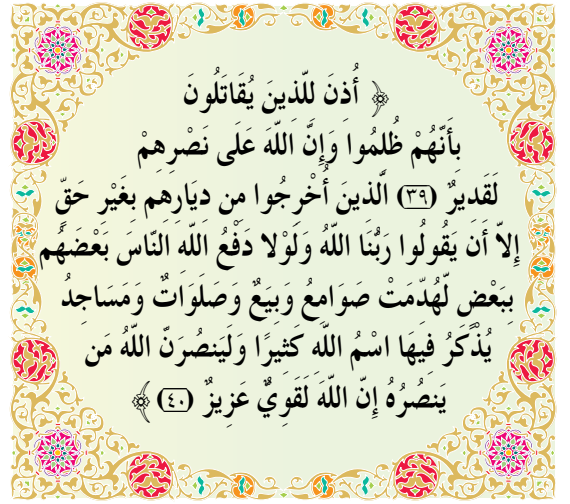 ﴿ أُذِنَ لِلَّذِينَ يُقَاتَلُونَ
بِأَنَّهُمْ ظُلِمُوا وَإِنَّ اللَّهَ عَلَى نَصْرِهِمْ
لَقَدِيرٌ (٣٩) الَّذِينَ أُخْرِجُوا مِن دِيَارِهِم بِغَيْرِ حَقٍّ
إِلاَّ أَن يَقُولُوا رَبُّنَا اللَّهُ وَلَوْلا دَفْعُ اللَّهِ النَّاسَ بَعْضَهُم
بِبَعْضٍ لَّهُدِّمَتْ صَوَامِعُ وَبِيَعٌ وَصَلَوَاتٌ وَمَسَاجِدُ
يُذْكَرُ فِيهَا اسْمُ اللَّهِ كَثِيرًا وَلَيَنصُرَنَّ اللَّهُ مَن
يَنصُرُهُ إِنَّ اللَّهَ لَقَوِيٌّ عَزِيزٌ (٤٠) ﴾